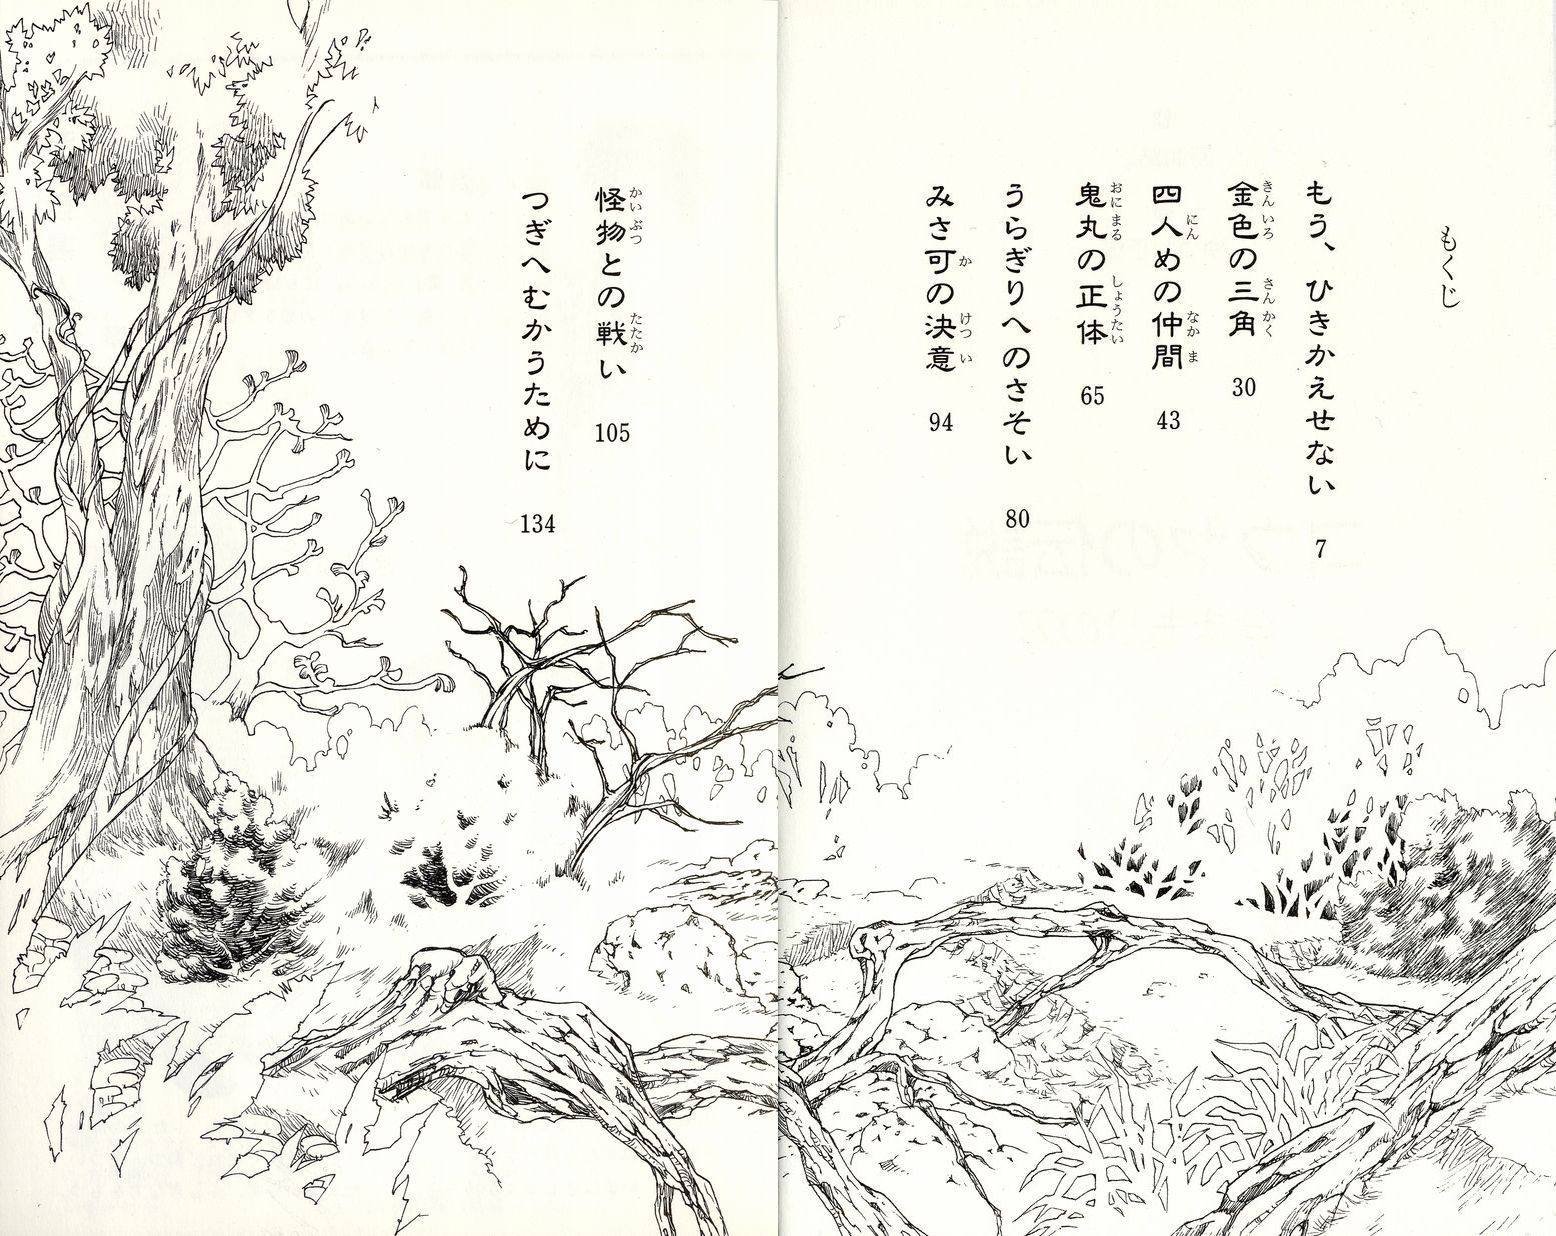 もくじ
もう、ひきかえせない 7
金色の三角 30
四人めの仲間 43
鬼丸の正体 65
うらぎりへのさそい 80
みさ可の決意 94
怪物との戦い 105
つぎへむかうために 134